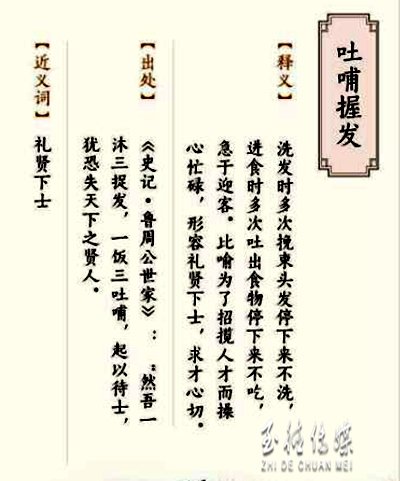 吐哺握发
【释义】
洗发时多次挽束头发停下来不洗，
进食时多次吐出食物停下来不吃，
急于迎客。比喻为了招揽人才而操
心忙碌，形容礼贤下士，求才心切。
【出处】
《史记·鲁周公世家》：“然吾一
沐三捉发，一饭三吐哺，起以待士，
犹恐失天下之贤人。
【近义词】
礼贤下士
至德传媒
ZHI DE CHUAN MEI